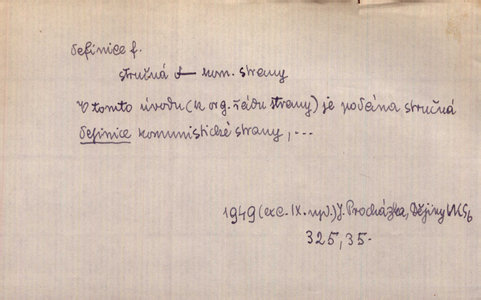 definice f.
stručná d– kom. strany
V tomto úvodu (k org. řádu strany) je podána stručná
definice komunistické strany, ...
1949 (exc. IX. vyd.) J. Procházka, Dějiny VKSb
325, 35.